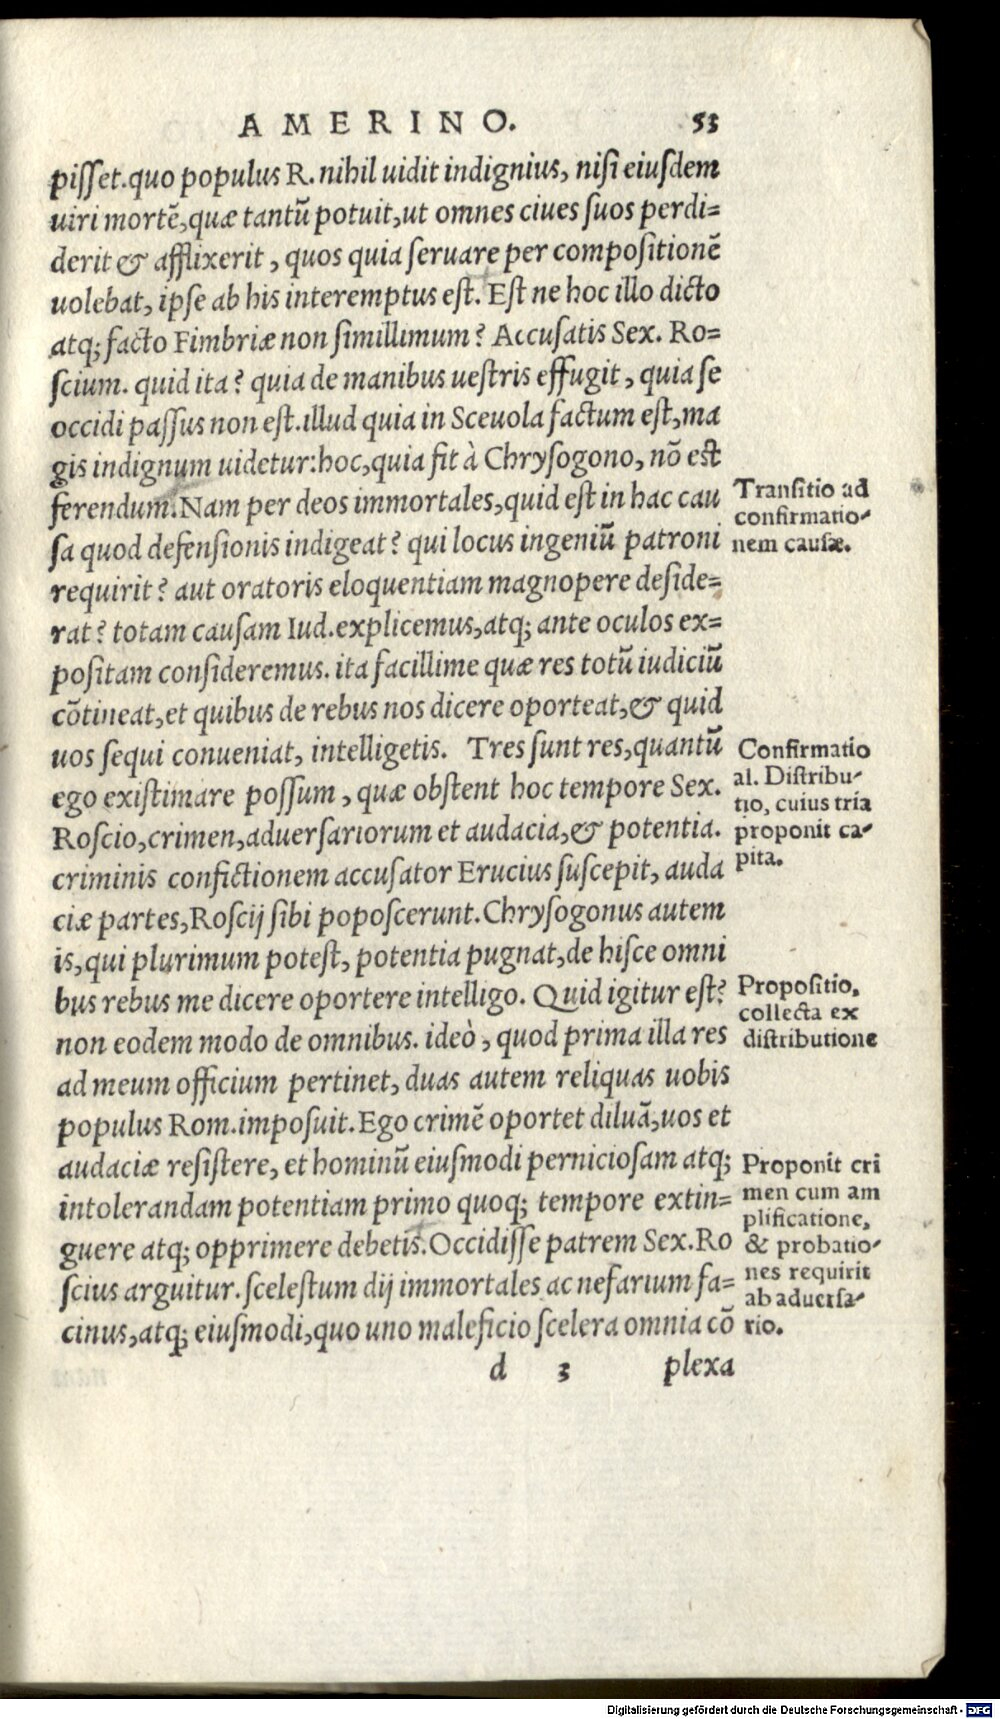 AMERINO. 53
pisset.quo populus R. nihil uidit indignius, nisi eiusdem
uiri mortẽ,quæ tantũ potuit,ut omnes ciues suos perdi=
derit & afflixerit, quos quia seruare per compositionẽ
uolebat, ipse ab his interemptus est. Est ne hoc illo dicto
atq; facto Fimbriæ non simillimum? Accusatis Sex. Ro=
scium. quid ita? quia de manibus uestris effugit, quia se
occidi passus non est.illud quia in Sceuola factum est,ma
gis indignum uidetur:hoc,quia fit à Chrysogono, nõ est
ferendum.Nam per deos immortales,quid est in hac cau
sa quod defensionis indigeat? qui locus ingeniũ patroni
requirit? aut oratoris eloquentiam magnopere deside=
rat? totam causam Iud.explicemus,atq; ante oculos ex=
positam consideremus. ita facillime quæ res totũ iudiciũ
cõtineat,et quibus de rebus nos dicere oporteat,& quid
uos sequi conueniat, intelligetis. Tres sunt res,quantũ
ego existimare possum, quæ obstent hoc tempore Sex.
Roscio,crimen,aduersariorum et audacia,& potentia.
criminis confictionem accusator Erucius suscepit, auda
ciæ partes,Roscij sibi poposcerunt.Chrysogonus autem
is,qui plurimum potest, potentia pugnat,de hisce omni
bus rebus me dicere oportere intelligo. Quid igitur est?
non eodem modo de omnibus. ideò, quod prima illa res
ad meum officium pertinet, duas autem reliquas uobis
populus Rom.imposuit.Ego crimẽ oportet diluã,uos et
audaciæ resistere, et hominũ eiusmodi perniciosam atq;
intolerandam potentiam primo quoq; tempore extin=
guere atq; opprimere debetis.Occidisse patrem Sex.Ro
scius arguitur. scelestum dij immortales ac nefarium fa=
cinus,atq; eiusmodi,quo uno maleficio scelera omnia cõ
d 3 plexa
Transitio ad
confirmatio-
nem causæ.
Confirmatio
al. Distribu-
tio, cuius tria
proponit ca-
pita.
Propositio,
collecta ex
distributione
Proponit cri
men cum am
plificatione,
& probatio-
nes requirit
ab aduersa-
rio.
Digitalisierung gefördert durch die Deutsche Forschungsgemeinschaft - DFG